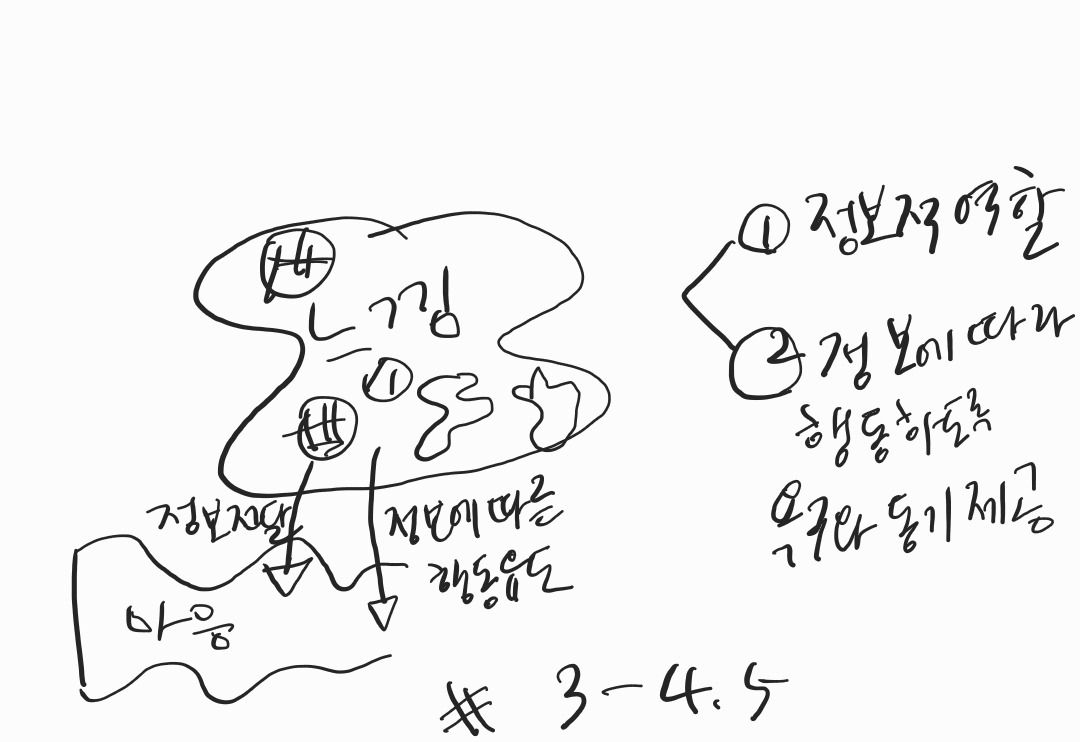 느낌
①
정보전달
정보에 따른
행동유도
마음
① 정보적 역할
② 정보에 따라
행동하도록
욕구와 동기 제공
# 3-4.5